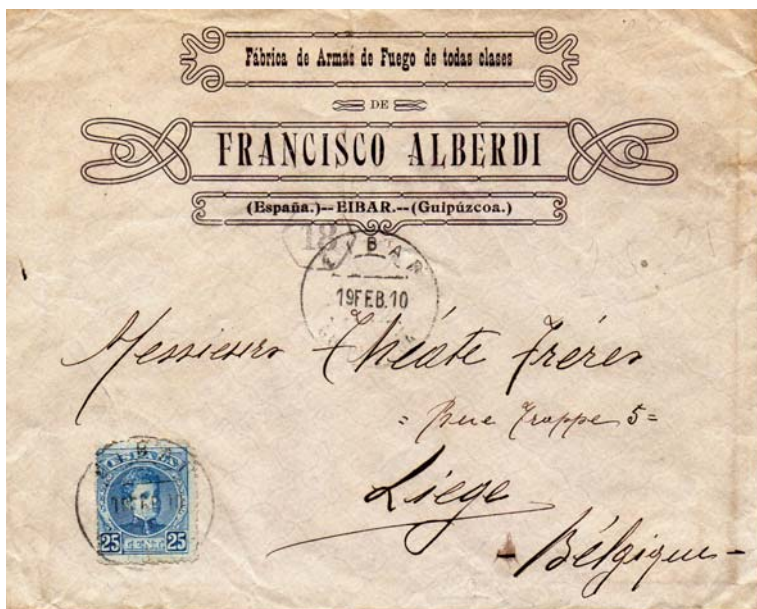 Fábrica de Armas de Fuego de todas clases
DE
FRANCISCO ALBERDI
(España.)--EIBAR.--(Guipúzcoa.)
18
EIBAR
19 FEB. 10
Messieurs Théate frères
= Rue Trappe 5 =
Liege
- Bélgique -
EIBAR
19 FEB 1
25 25